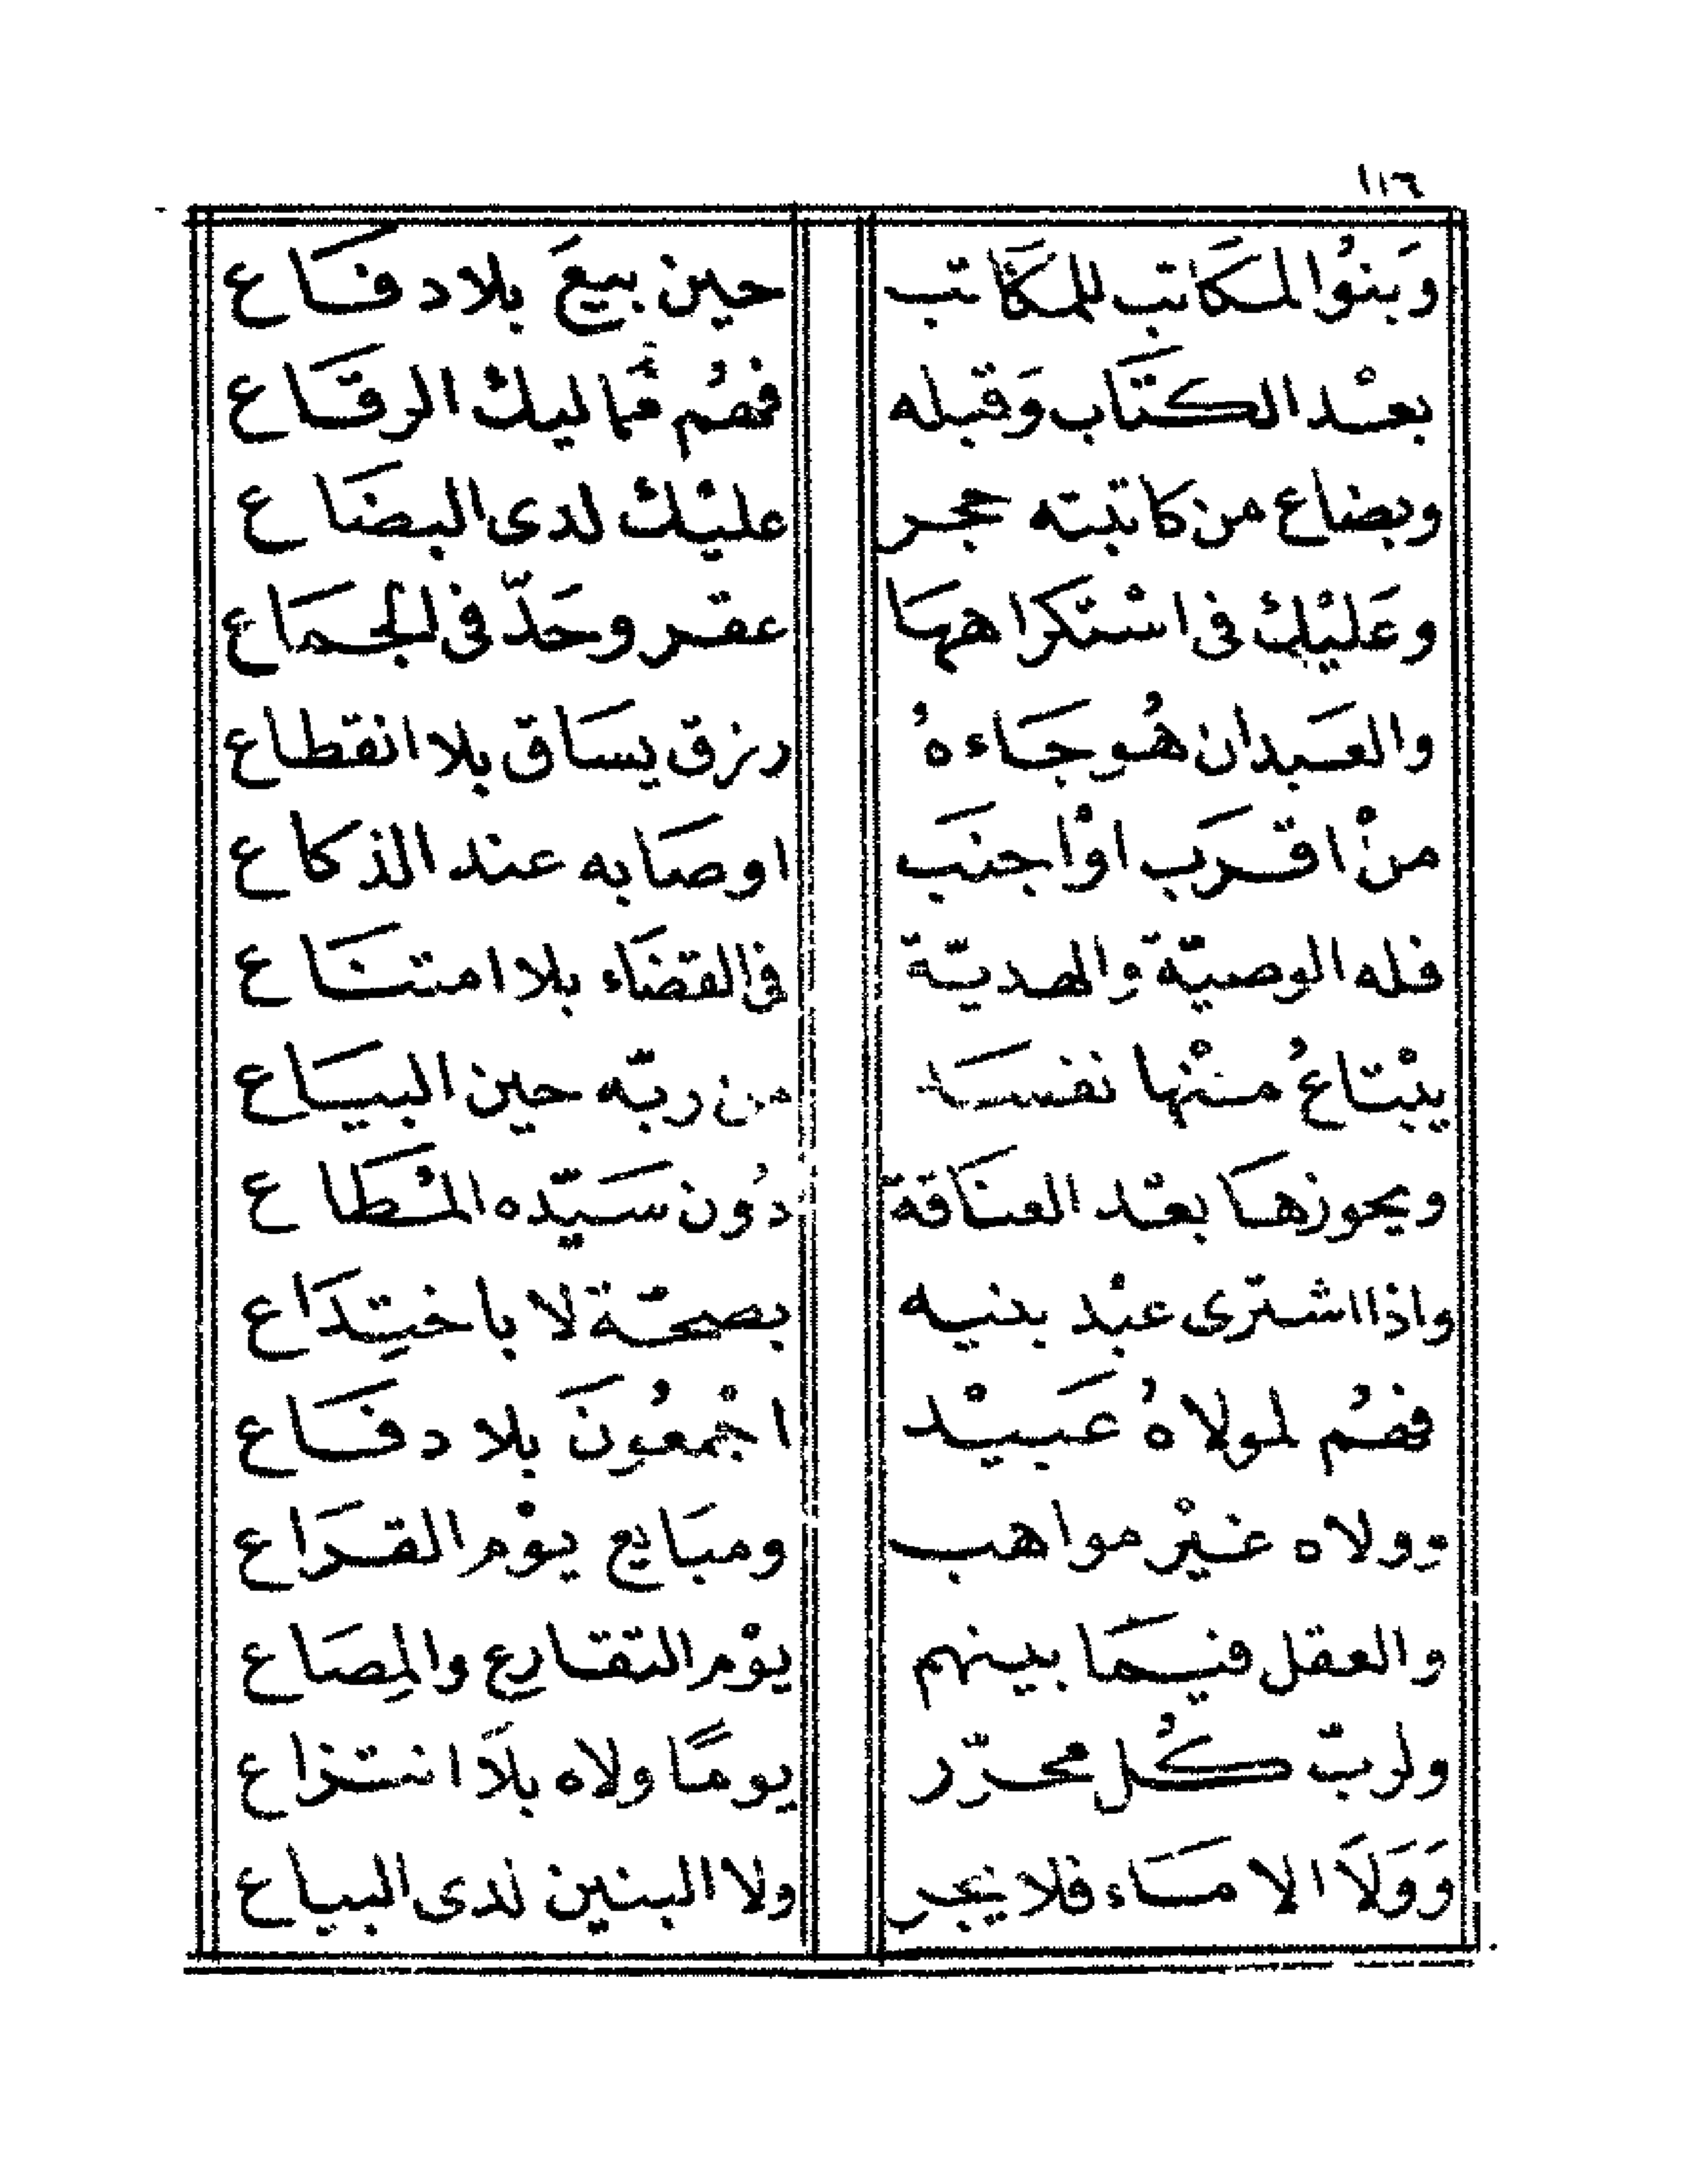 ١١٦
وَبنوُا المكَاتب للمكَاتب حين بيعَ بلا دفَاع
بعْد الكتَاب وَقبله فهُم مماليك الرقّاع
وبضاع من كاتبته حجر عليْك لدى البضَاع
وعَليْك فى اسْتكراههَا عقر وحَدّ فى الجمَاع
والعَبد ان هُو جَاءهُ رزق يسَاق بلا انقطاع
منْ اقرَب اوْ اجنَب اوصَا به عند الذكاع
فله الوصيّة والهديّة فى القضَاء بلا امتنَاع
يبْتاعُ منْها نفسَه من ربّه حين البيَاع
ويحوزهَا بعْد العتَاقة دُون سَيّده المْطَاع
واذا اشترى عبْد بنيه بصحّة لا باختِدَاع
فهُم لمولاهُ عَبيْد اجْمعُونَ بلا دفَاع
وولاه غيْر مواهب ومبَايع يوْم القرَاع
والعقل فيمَا بينهم يوْم التقارع والمِصَاع
ولربّ كُل محرّر يومًا ولاه بلَا انتزاع
وَوَلَا الامَاء فلا يجر ولا البنين لدى البياع